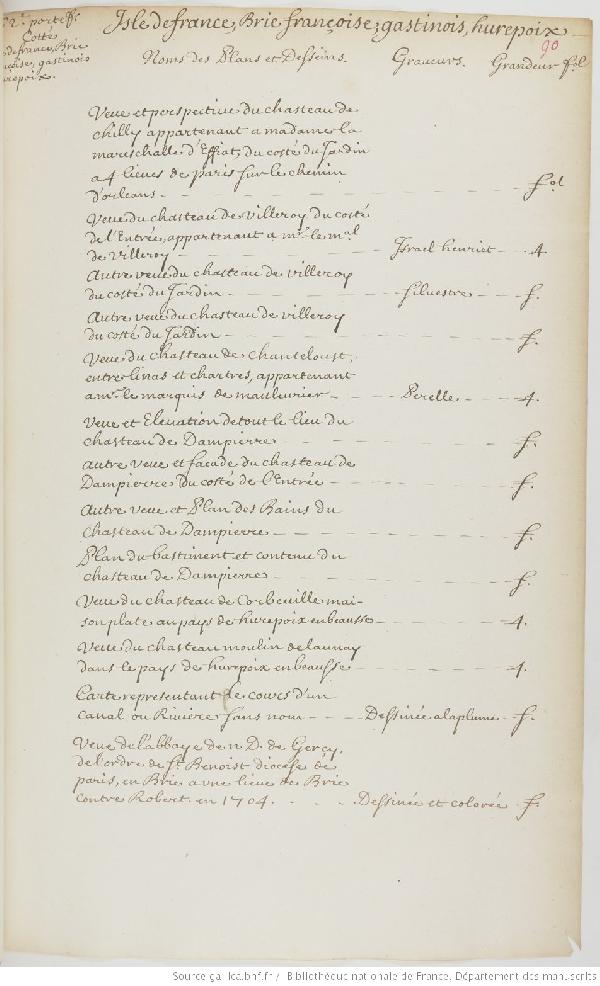 Isle de france, Brie françoise, gastinois, hurepoix
90
2e. portefle.
Cotté
de france, Brie
gastinois
Noms des Plans et Desseins. Graveurs. Grandeur fol.
Veue et perspective du chasteau de
chilly appartenant a madame la
mareschalle d'Effiat, du costé du Jardin
a 4 lieues de paris sur le chemin
d'orleans - fol
Veue du chasteau de Villeroy du costé
de l'Entrée, appartenant a mr. le mal.
de Villeroy - Israel henriet - 4
Autre veue du chasteau de villeroy
du costé du Jardin - silvestre - f.
Autre veue du chasteau de villeroy
du costé du Jardin - f.
Veue du chasteau de Chanteloust,
entre linas et chartres, appartenant
a mr. le marquis de maulevrier - Perelle - 4.
Veue et Elevation de tout le lieu du
chasteau de Dampierre - f.
autre veue et facade du chasteau de
Dampierre du costé de l'Entrée - f.
Autre veue et Plan des Bains du
chasteau de Dampierre - f.
Plan du bastiment et contenu du
chasteau de Dampierre - f.
Veue du chasteau de Corbeuille mai-
son plate au pays de hurepoix en beausse - 4.
Veue du chasteau moulin de launay
dans le pays de hurepoix en beausse - 4.
Carte representant le cours d'un
canal ou Riviere sans nom - Dessinée a la plume - f.
Veue de l'abbaye de n. D. de Gercy,
de l'ordre de St. Benoist diocese de
paris, en Brie a une lieue de Brie
contre Robert. en 1704. Dessinée et colorée f.
Source gallica.bnf.fr / Bibliothèque nationale de France. Département des manuscrits